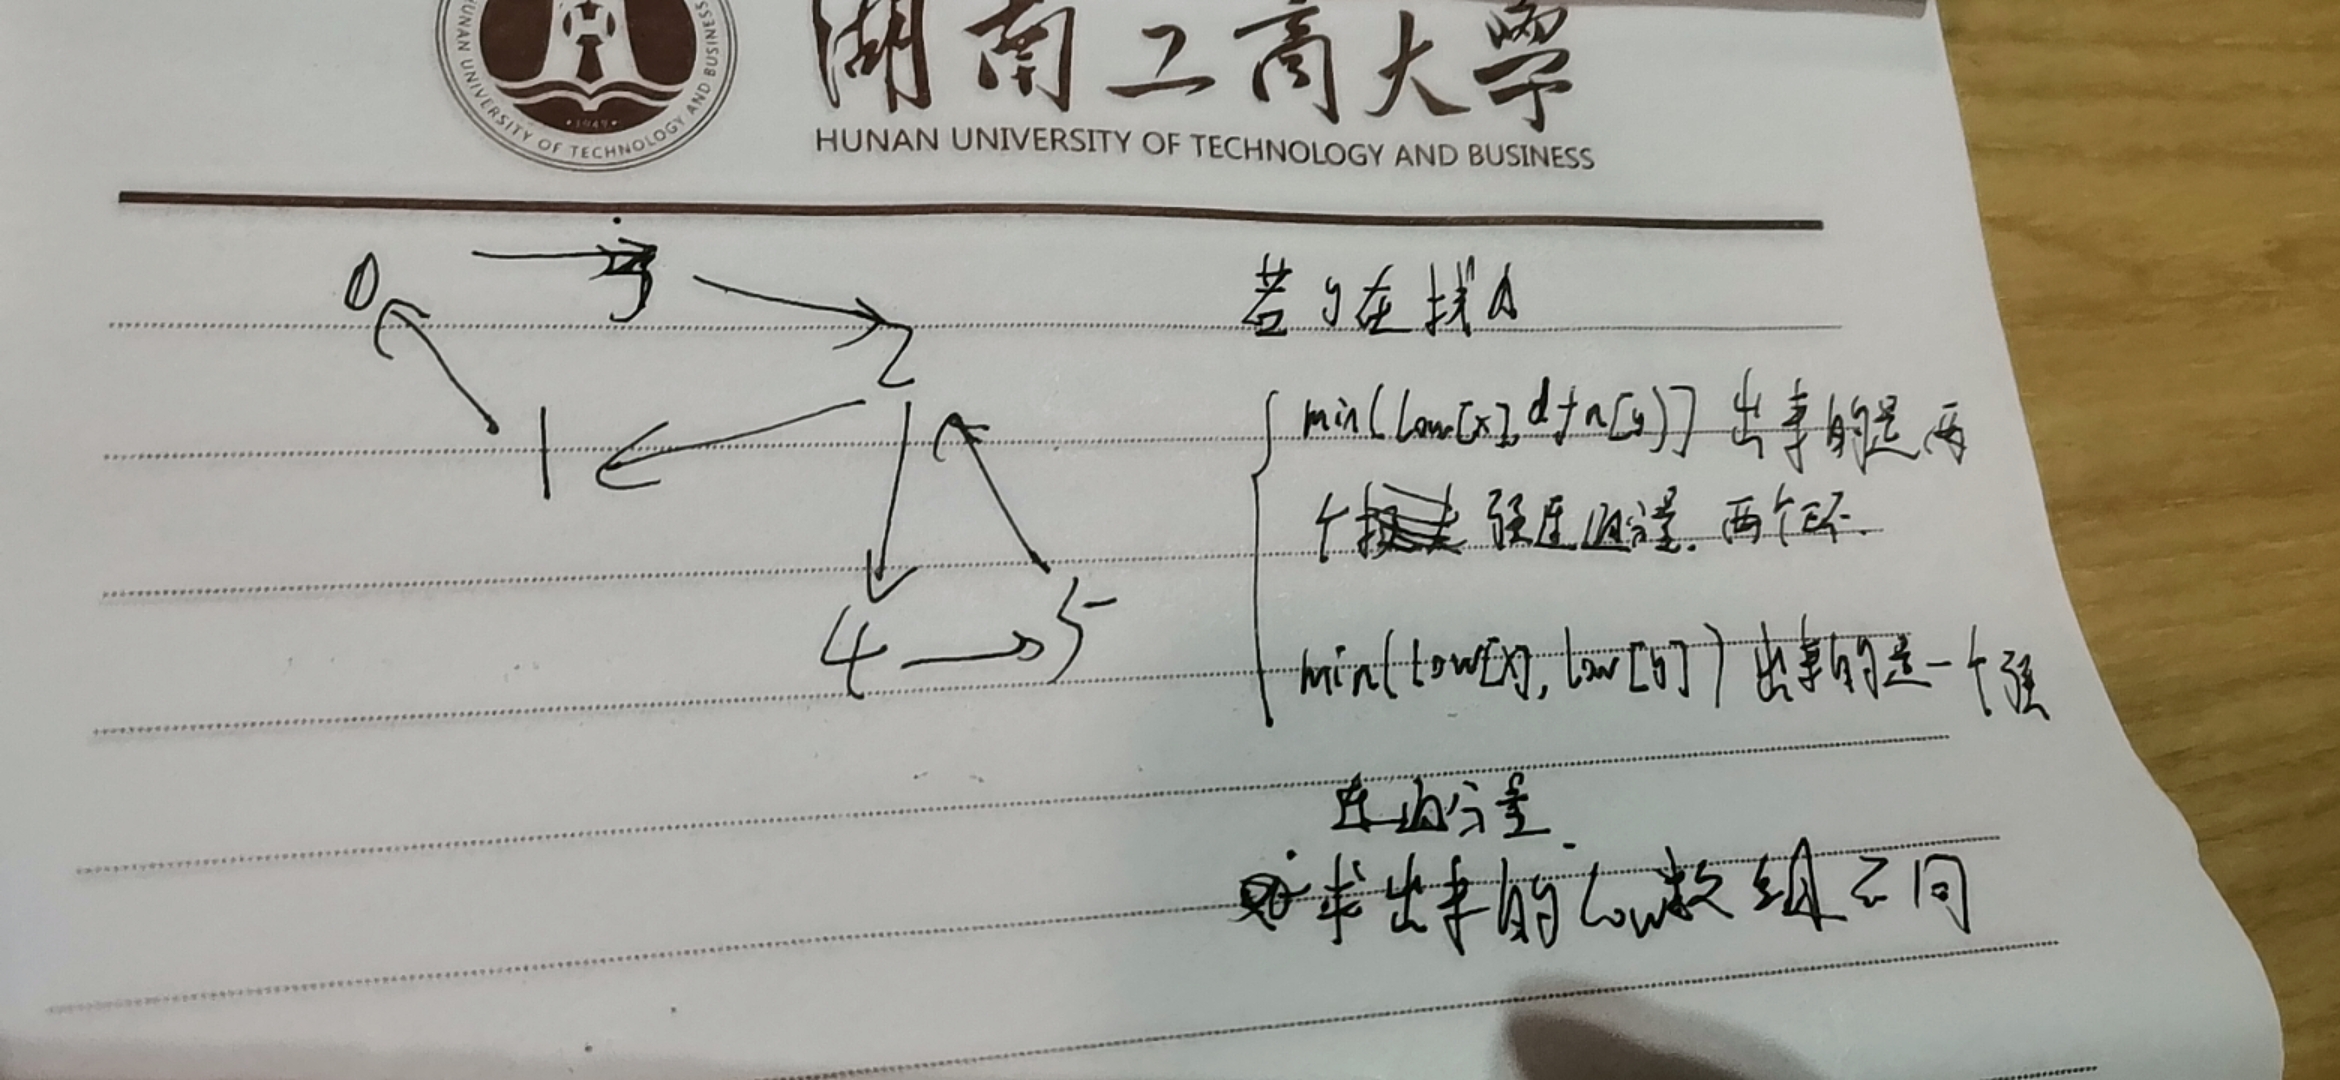 湖南工商大学
HUNAN UNIVERSITY OF TECHNOLOGY AND BUSINESS
HUNAN UNIVERSITY OF TECHNOLOGY AND BUSINESS
·1949·
0
3
2
1
4
5
若y在栈内
min(low[x], dfn[y)] 出来的是两
个 强连通分量. 两个环.
min(low[x], low[y]) 出来的是一个强
连通分量.
求出来的low数组不同